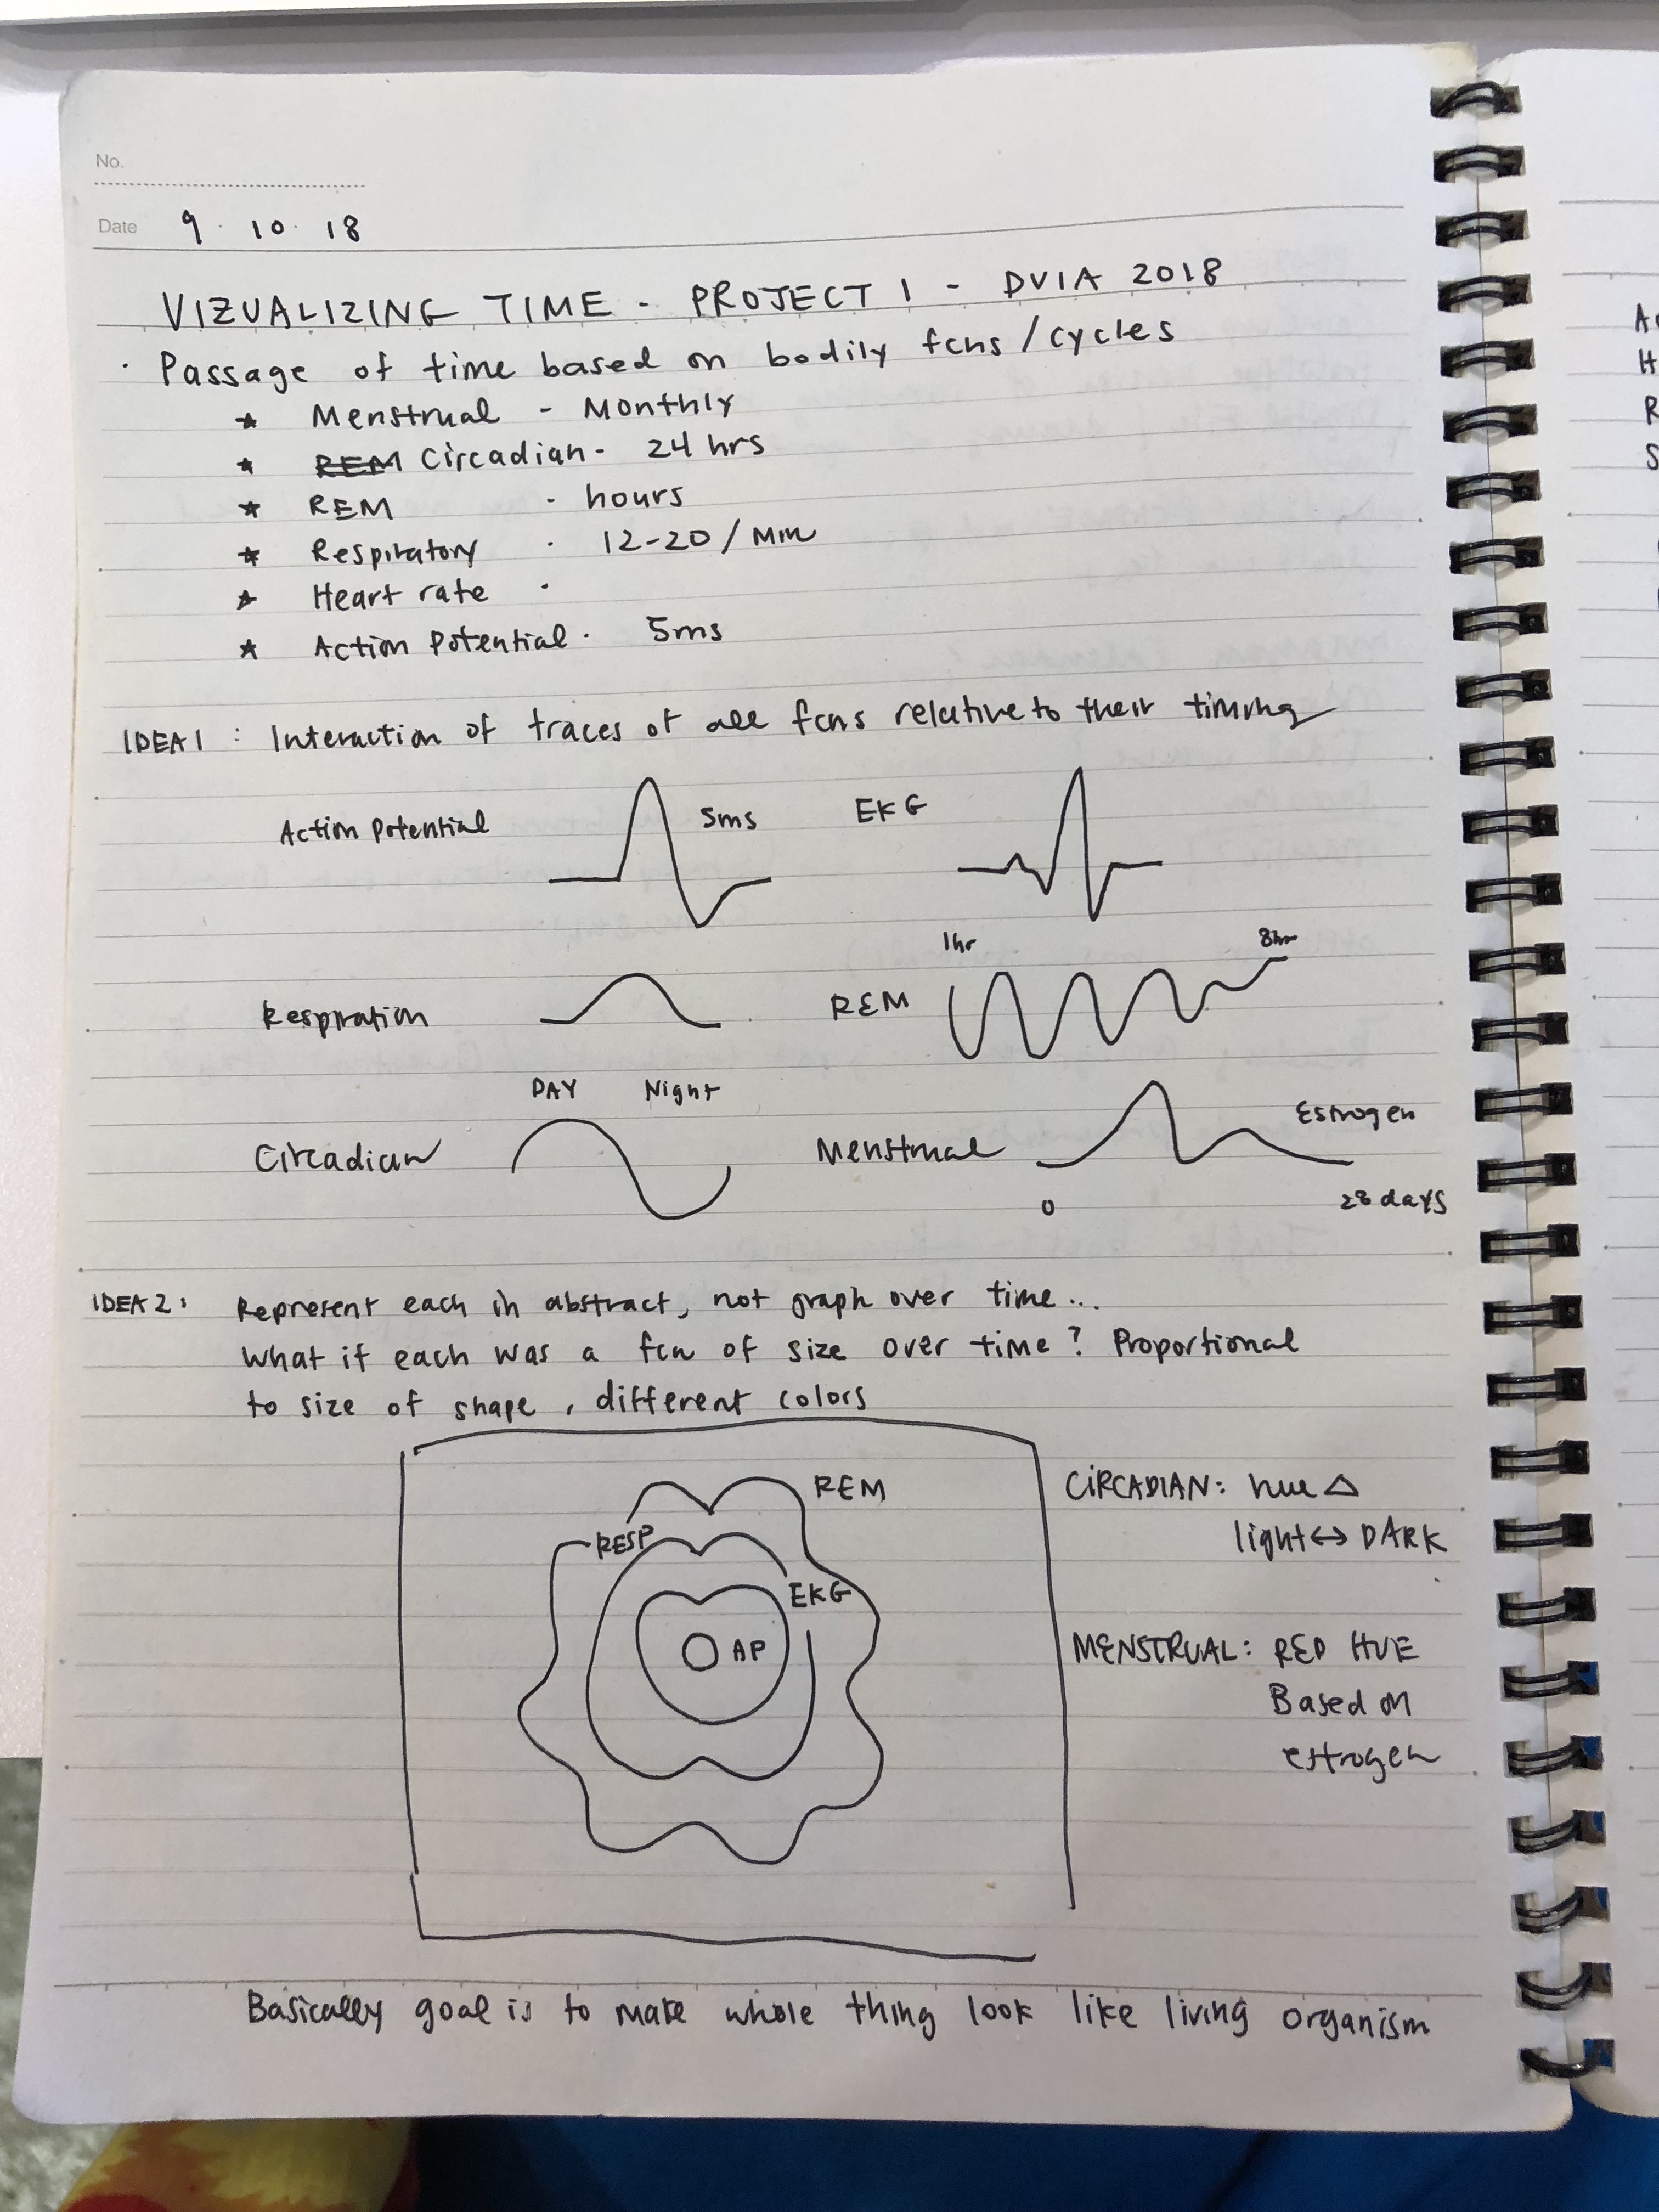 No.
Date 9 · 10 · 18
VIZUALIZING TIME - PROJECT 1 - DVIA 2018
· Passage of time based on bodily fcns/cycles
* Menstrual - Monthly
* REM Circadian - 24 hrs
* REM - hours
* Respiratory · 12-20/Min
* Heart rate ·
* Action Potential · 5ms
IDEA 1 : Interaction of traces of all fcns relative to their timing
Action Potential 5ms EKG
1hr 8hr
Respiration REM
DAY Night
Circadian Menstrual Estrogen
0 28 days
IDEA 2: Represent each in abstract, not graph over time...
What if each was a fcn of size over time? Proportional
to size of shape, different colors
REM CIRCADIAN: hue △
RESP light ↔ DARK
EKG
AP MENSTRUAL: RED HUE
Based on
estrogen
Basically goal is to make whole thing look like living organism
A
H
R
S